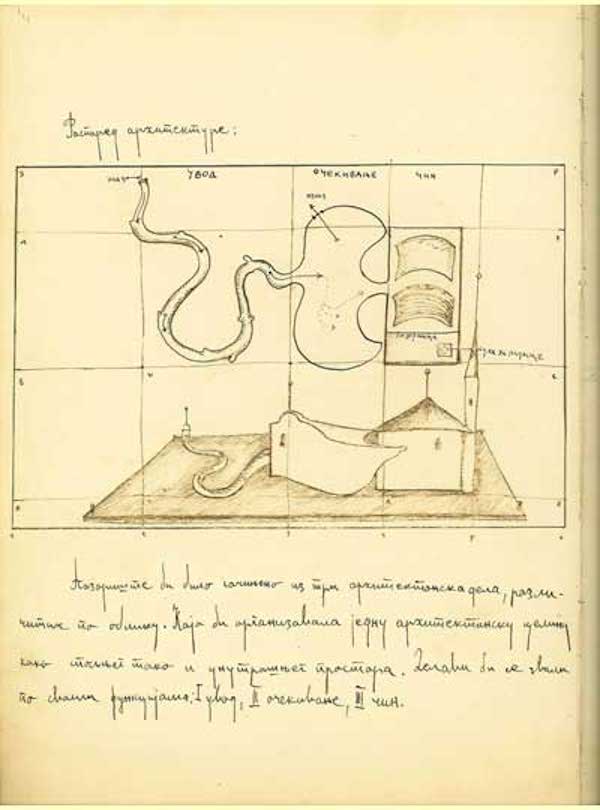 Распоред архитектуре:
улаз УВОД ОЧЕКИВАЊЕ ЧИН
излаз
Позориште би било сачињено из три архитектонска дела, разли-
читих по облику. Која би организавала једну архитектонску целину
како спољнег тако и унутрашњег простора. Делови би се звали
по својим функцијама; I увод, II очекивање, III чин.